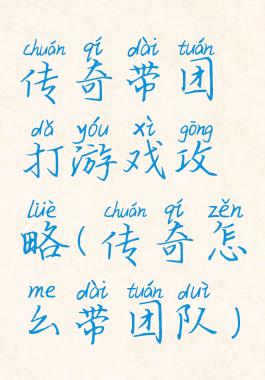 chuán qí dài tuán
传奇带团
dǎ yóu xì gōng
打游戏攻
lüè ( chuán qí zěn
略(传奇怎
me dài tuán duì
么带团队)